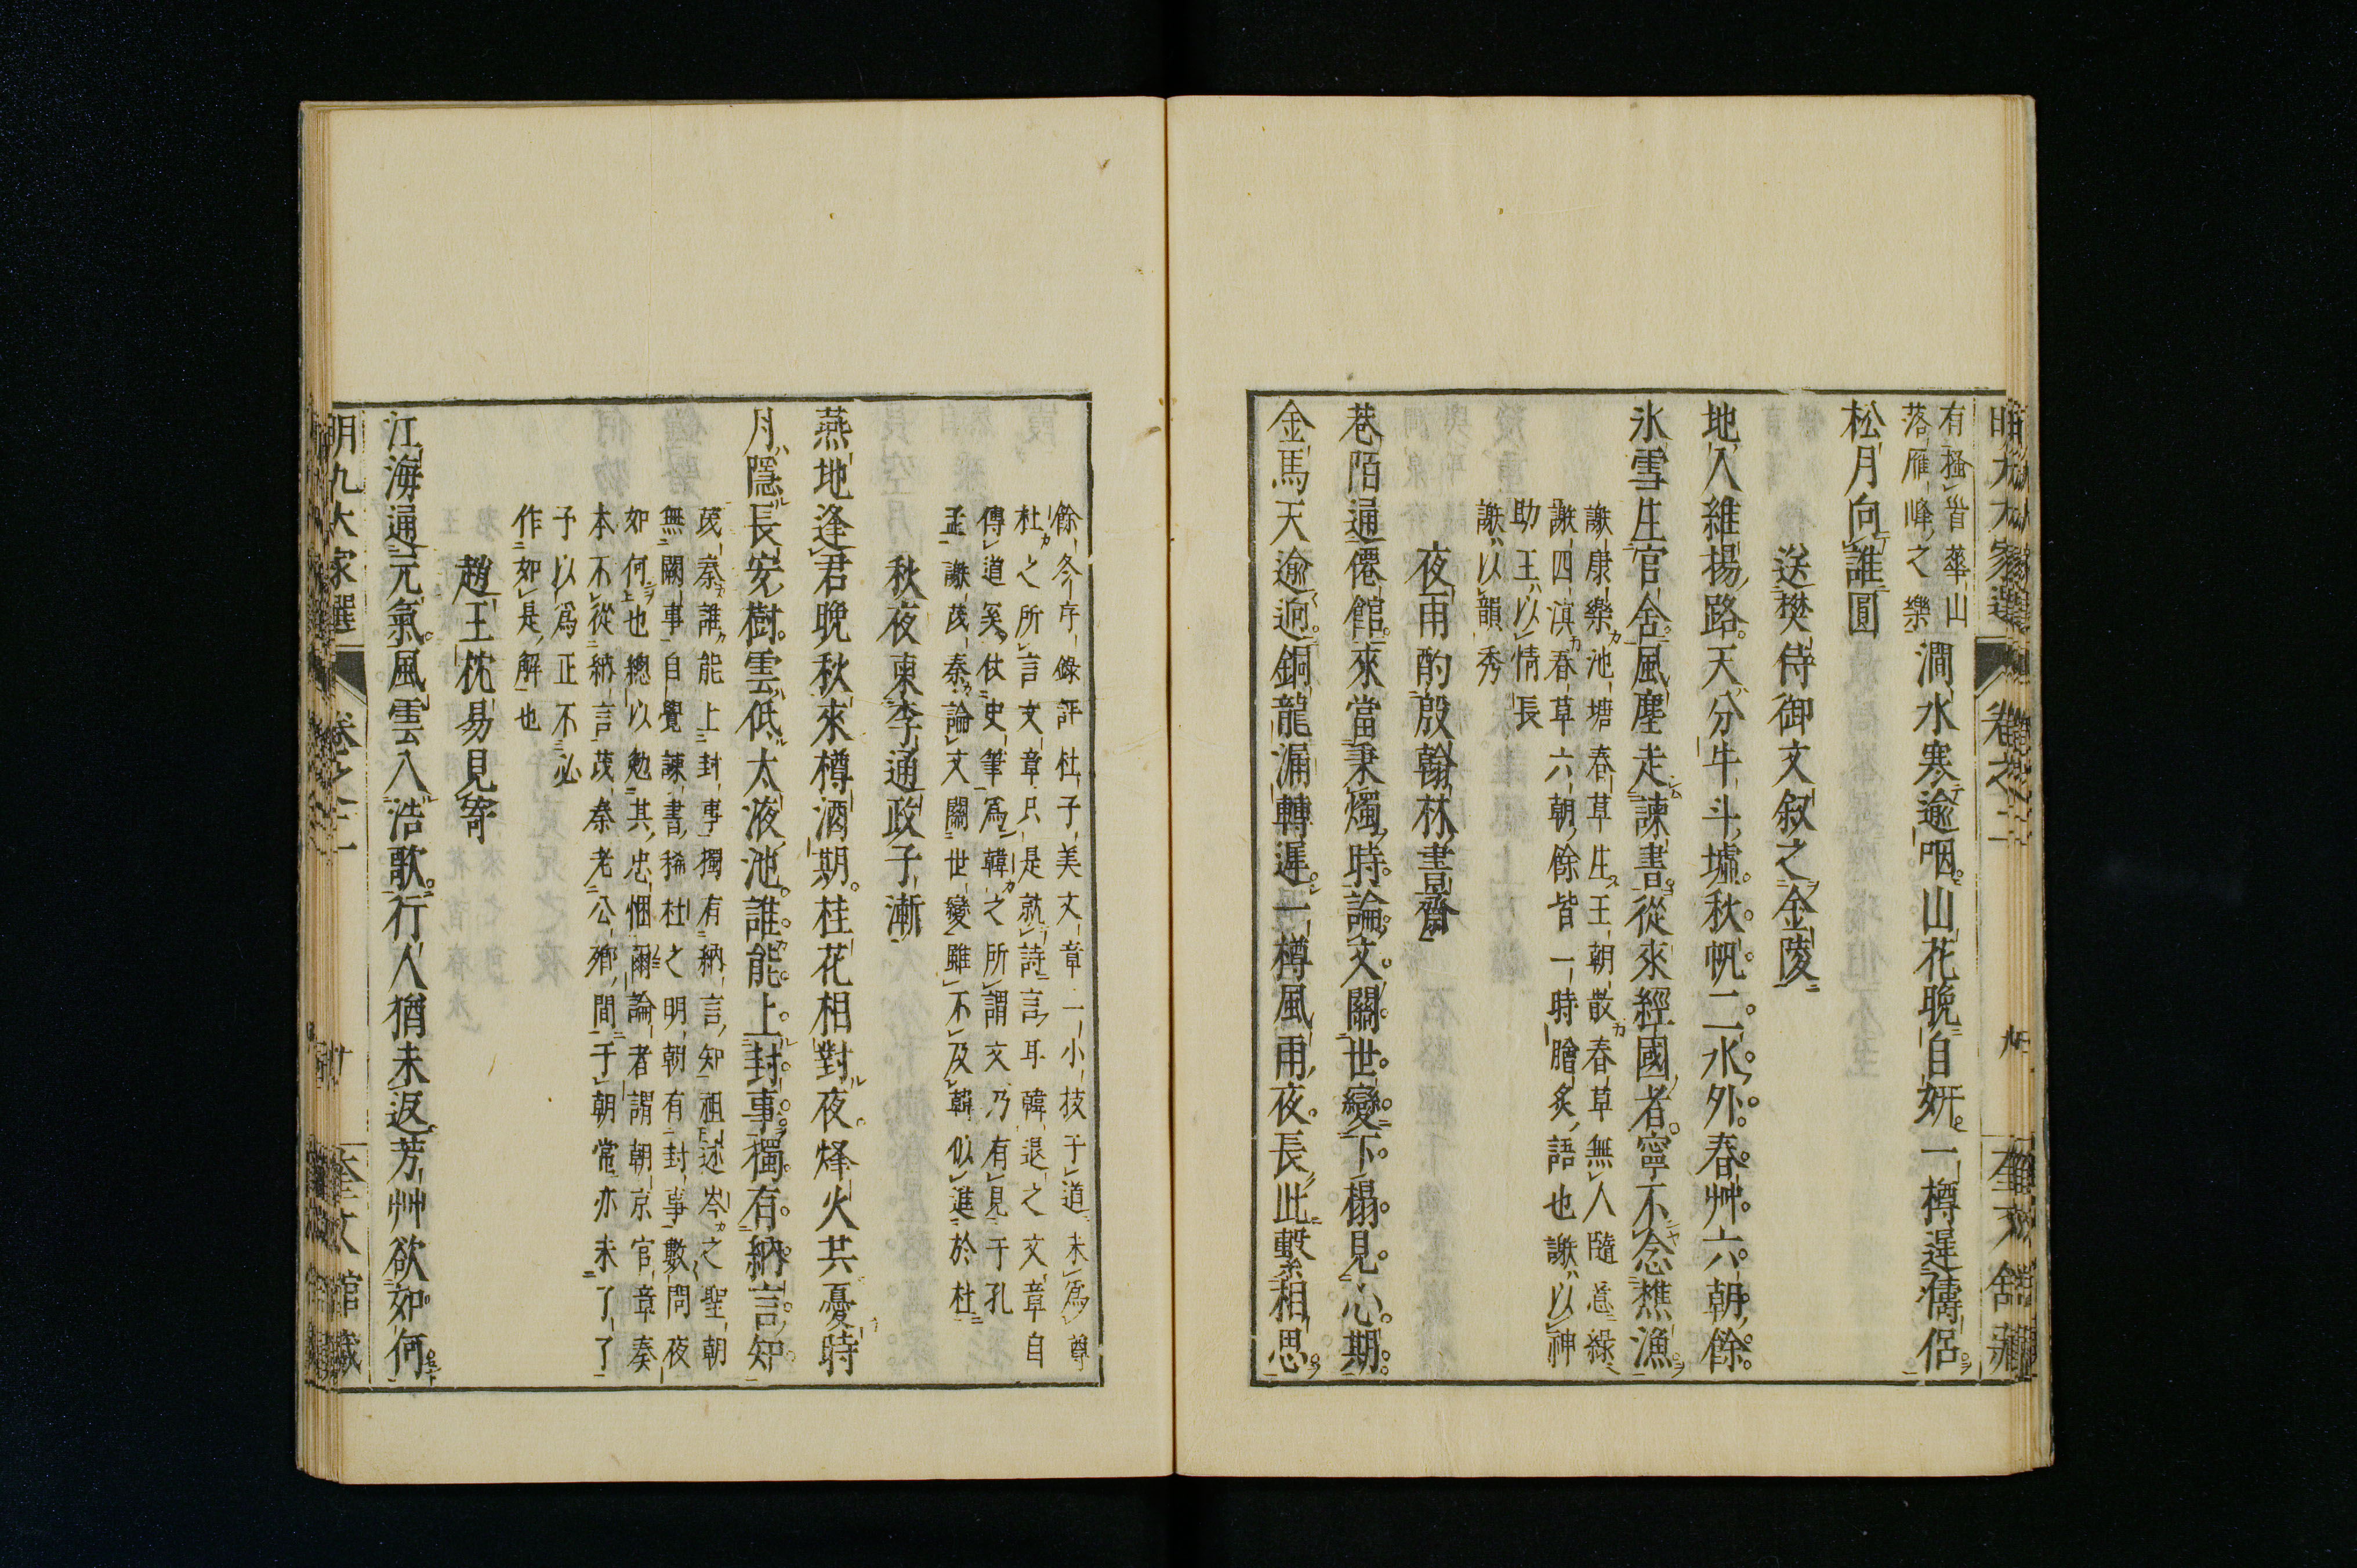 有搔首華山
落雁峰之樂
澗水寒逾咽山花晚自妍一樽遲儔侶
松月向誰圓
送樊侍御文叙之金陵
地入維揚路天分牛斗墟秋帆二水外春艸六朝餘
氷雪生官舍風塵走諫書從來經國者寧不念樵漁
謝康樂池塘春草生王朝散春草無人隨意綠
謝四溟春草六朝餘皆一時膾炙語也謝以神
助王以情長
謝以韻秀
夜雨酌殷翰林書齋
巷陌通僊館來當秉燭時論文關世變下榻見心期
金馬天逾逈銅龍漏轉遲一樽風雨夜長此繫相思
餘冬序錄評杜子美文章一小技于道未爲尊
杜之所言文章只是就詩言耳韓退之文章自
傳道矣伎史筆爲韓之所謂文乃有見于孔
孟謝茂秦論文關世變雖不及韓似進於杜
秋夜柬李通政子漸
燕地逢君晚秋來樽酒期桂花相對夜烽火共憂時
月隱長安樹雲低太液池誰能上封事獨有納言知
茂秦誰能上封事獨有納言知祖述岑之聖朝
無闕事自覺諫書稀杜之明朝有封事數問夜
如何也總以勉其忠悃爾論者謂朝京官章奏
本不從納言茂秦老公鄉間于朝常亦未了了
予以爲正不必
作如是解也
趙王枕易見寄
江海通元氣風雲入浩歌行人猶未返芳艸欲如何
明九大家選
卷之二
十
奎文館藏